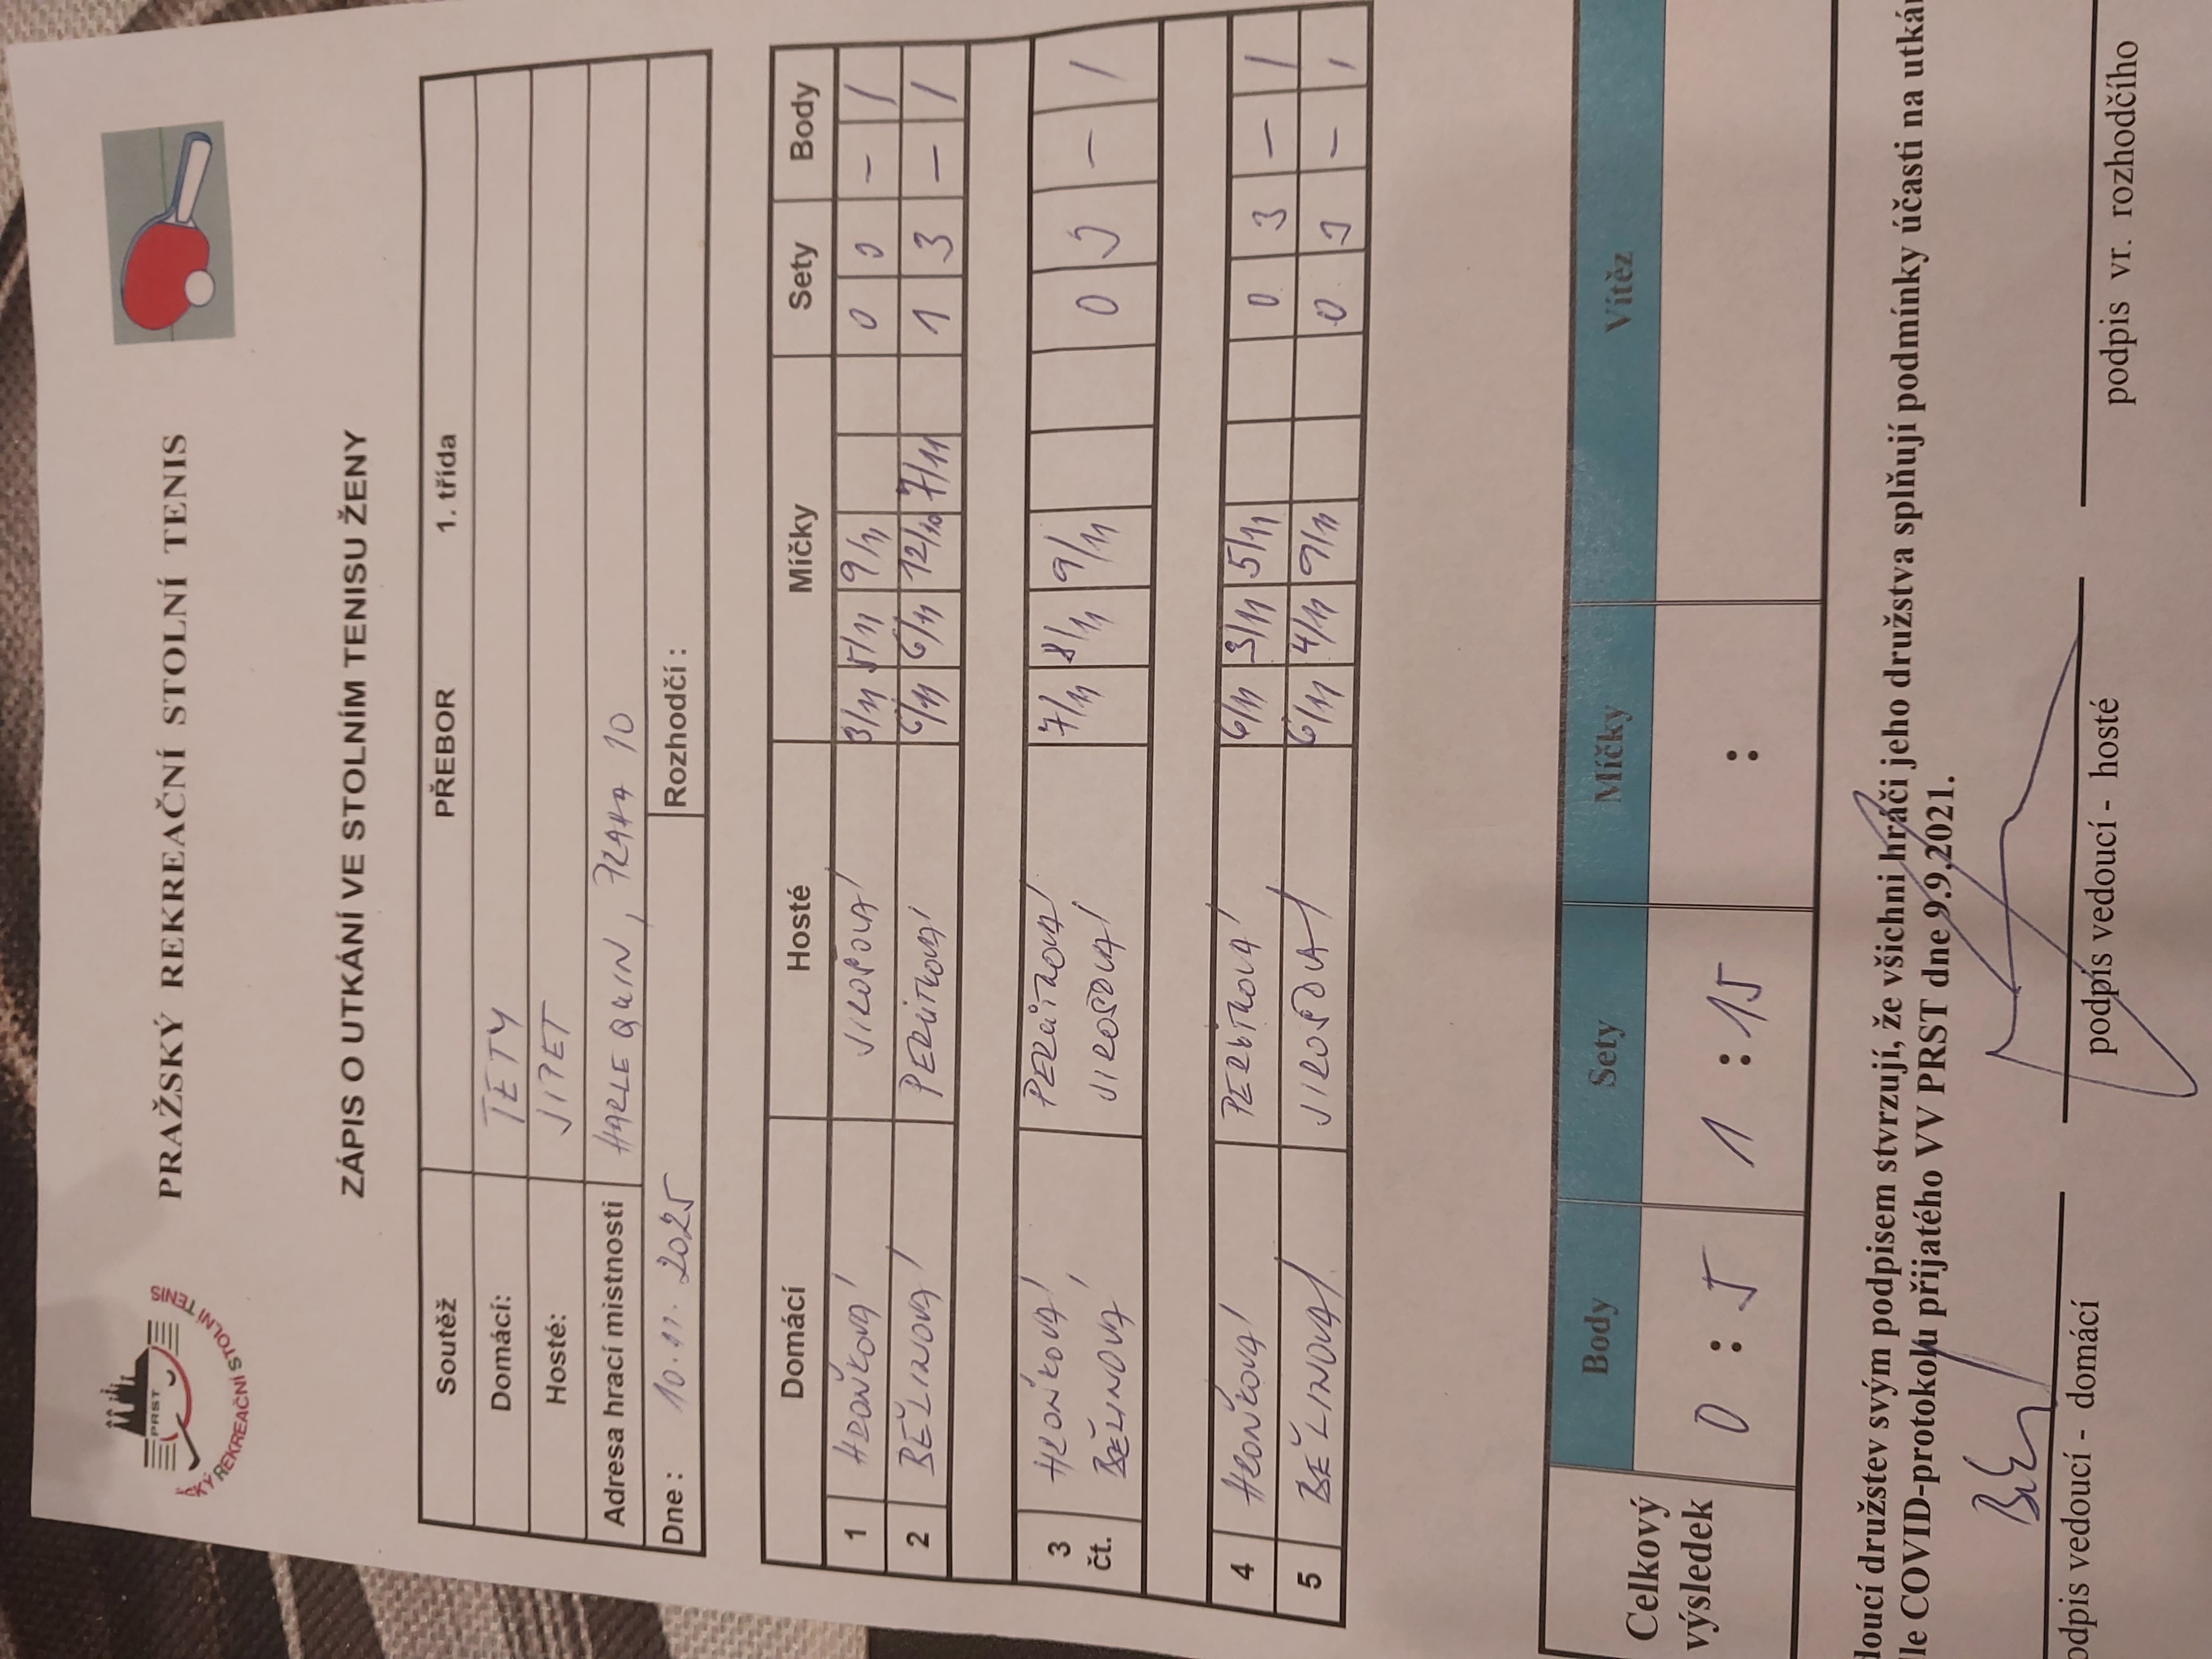 PRAŽSKÝ REKREAČNÍ STOLNÍ TENIS
PRST
REKREAČNÍ STOLNÍ TENIS
ZÁPIS O UTKÁNÍ VE STOLNÍM TENISU ŽENY
Soutěž PŘEBOR 1. třída
Domácí: TETY
Hosté: JIPET
Adresa hrací místnosti HARLEQUIN, PRAHA 10
Dne : 10.11. 2025 Rozhodčí :
Domácí Hosté Míčky Sety Body
1 HRONÍKOVÁ JIROŠOVÁ 3/11 5/11 9/11 0 0 – /
2 BĚLINOVÁ PERLÍTKOVÁ 6/11 6/11 12/10 7/11 1 3 – /
3 HRONÍKOVÁ PERLÍTKOVÁ 7/11 8/11 9/11 0 3 – /
čt. BĚLINOVÁ JIROŠOVÁ
4 HRONÍKOVÁ PERLÍTKOVÁ 6/11 3/11 5/11 0 3 – /
5 BĚLINOVÁ JIROŠOVÁ 6/11 4/11 9/11 0 3 – /
Celkový výsledek
Body Sety Míčky Vítěz
0 : 5 1 : 15 :
doucí družstev svým podpisem stvrzují, že všichni hráči jeho družstva splňují podmínky účasti na utká
le COVID-protokolu přijatého VV PRST dne 9.9.2021.
odpis vedoucí - domácí podpis vedoucí - hosté podpis vr. rozhodčího